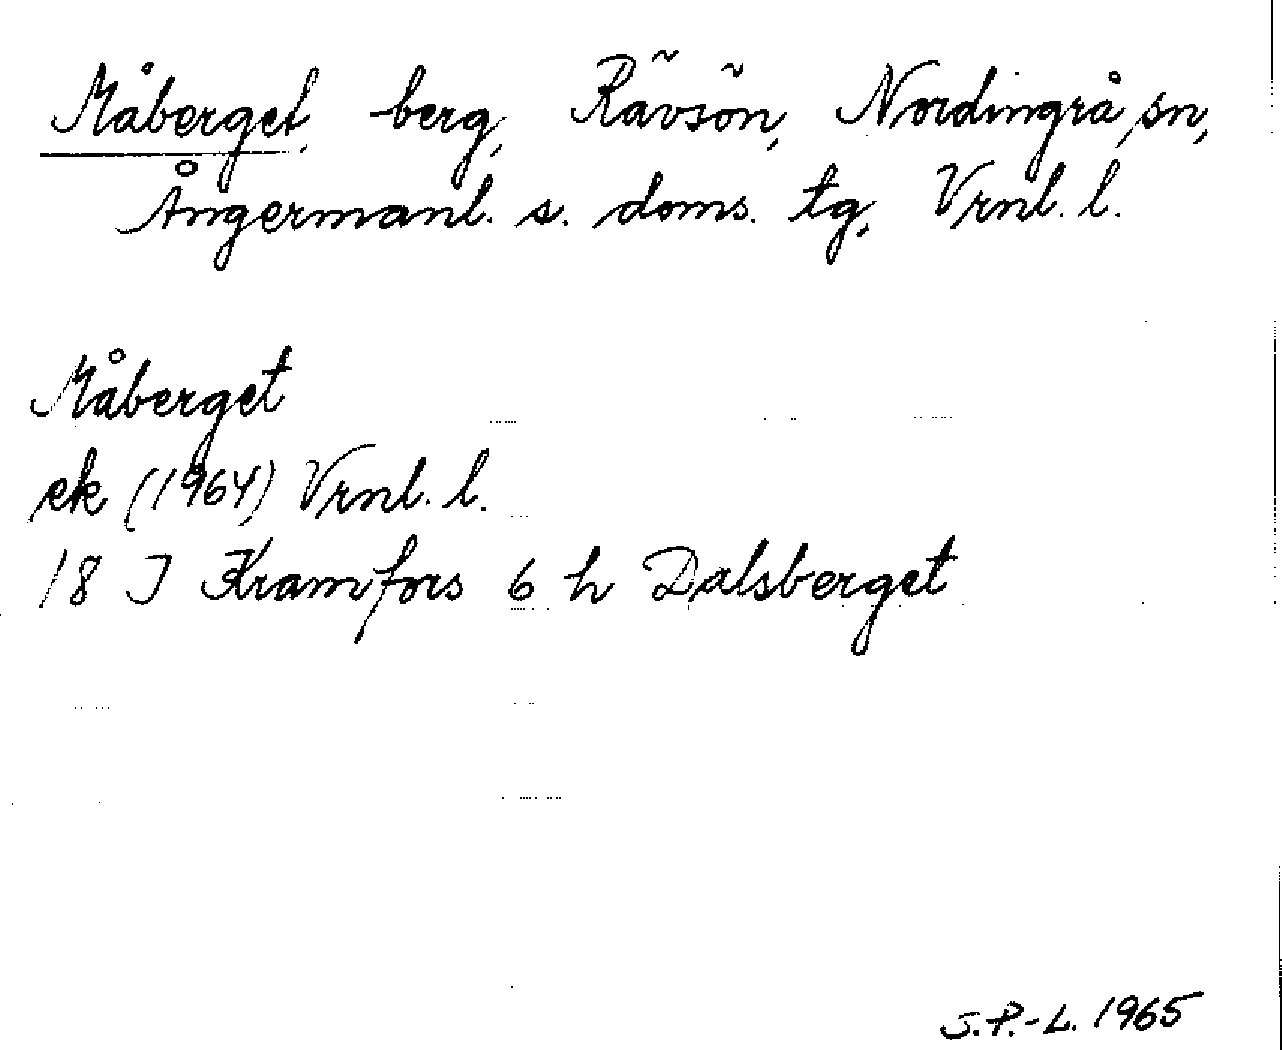 Måberget, berg, Rävsön, Nordingrå sn,
Ångermanl. s. doms. tg, Vrnl. l.
Måberget
ek (1964) Vrnl. l.
18 J Kramfors 6 h Dalsberget
S.P.-L. 1965